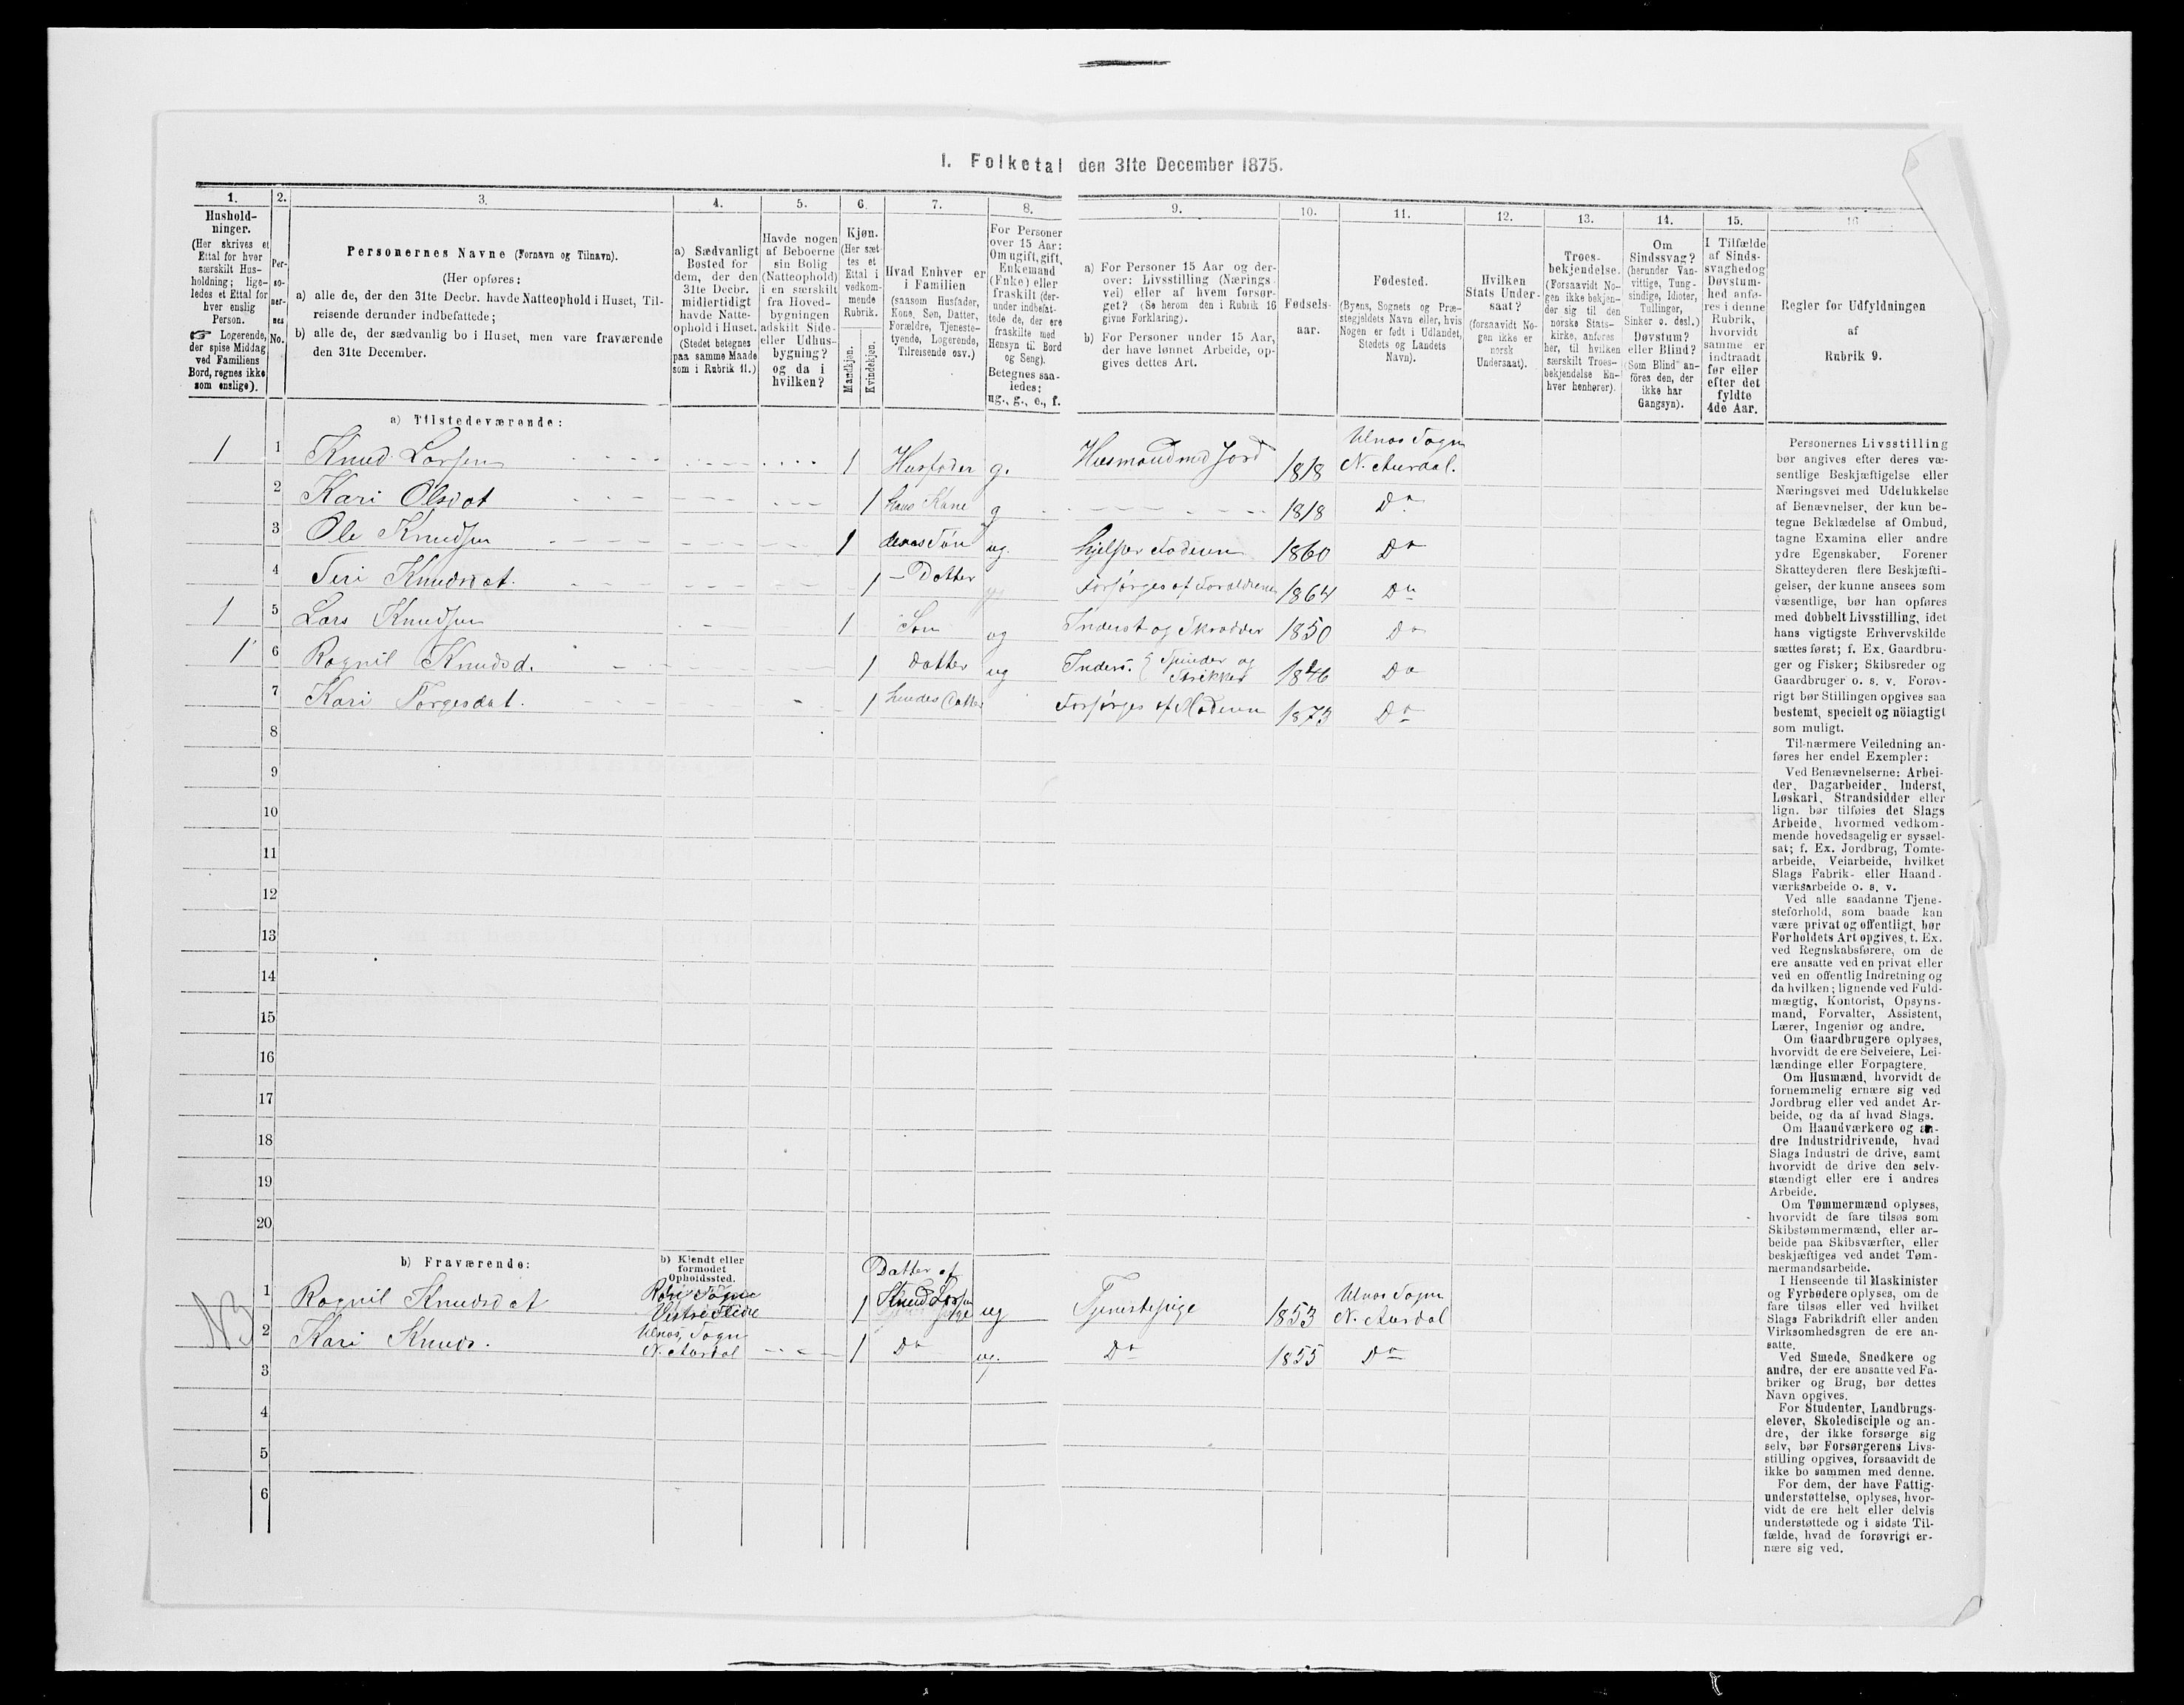 I. Folketal den 31te December 1875.
1. 2. 3. 4. 5. 6. 7. 8. 9. 10. 11. 12. 13. 14. 15. 16
Hushold-
ninger.
(Her skrives et
Ettal for hver
særskilt Hus-
holdning; lige-
ledes et Ettal for
hver enslig
Person.
☞ Logerende,
der spise Middag
ved Familiens
Bord, regnes ikke
som enslige).
Per-
so-
ner-
nes
No.
Personernes Navne (Fornavn og Tilnavn).
(Her opføres:
a) alle de, der den 31te Decbr. havde Natteophold i Huset, Til-
reisende derunder indbefattede;
b) alle de, der sædvanlig bo i Huset, men vare fraværende
den 31te December.
a) Sædvanligt
Bosted for
dem, der den
31te Decbr.
midlertidigt
havde Natte-
ophold i Huset.
(Stedet betegnes
paa samme Maade
som i Rubrik 11.)
Havde nogen
af Beboerne
sin Bolig
(Natteophold)
i en særskilt
fra Hoved-
bygningen
adskilt Side-
eller Udhus-
bygning?
og da i
hvilken?
Kjøn.
(Her sæt-
tes et
Ettal i
vedkom-
mende
Rubrik.
Mandkjøn.
Kvindekjøn.
Hvad Enhver er
i Familien
(saasom Husfader,
Kone, Søn, Datter,
Forældre, Tjeneste-
tyende, Logerende,
Tilreisende osv.)
For Personer
over 15 Aar:
Om ugift, gift,
Enkemand
(Enke) eller
fraskilt (der-
under indbefat-
tede de, der ere
fraskilte med
Hensyn til Bord
og Seng).
Betegnes saa-
ledes:
ug., g., e., f.
a) For Personer 15 Aar og der-
over: Livsstilling (Nærings-
vei) eller af hvem forsør-
get? (Se herom den i Rubrik 16
givne Forklaring).
b) For Personer under 15 Aar,
der have lønnet Arbeide, op-
gives dettes Art.
Fødsels-
aar.
Fødested.
(Byens, Sognets og Præ-
stegjeldets Navn eller, hvis
Nogen er født i Udlandet,
Stedets og Landets
Navn).
Hvilken
Stats Under-
saat?
(forsaavidt No-
gen ikke er
norsk
Undersaat).
Troes-
bekjendelse.
(Forsaavidt No-
gen ikke bekjen-
der sig til den
norske Stats-
kirke, anføres
her, til hvilken
særskilt Troes-
bekjendelse En-
hver henhører).
Om
Sindssvag?
(herunder Van-
vittige, Tung-
sindige, Idioter,
Tullinger,
Sinker o. desl.)
Døvstum?
eller Blind?
(Som Blind" an-
føres den, der
ikke har
Gangsyn).
I Tilfælde
af Sinds-
svaghed og
Døvstum-
hed anfø-
res i denne
Rubrik,
hvorvidt
samme er
indtraadt
før eller
efter det
fyldte
4de Aar.
Regler for Udfyldningen
af
Rubrik 9.
a) Tilstedeværende:
1 1 Knud Larsen 1 Husfader g. Husmand med Jord 1818 Ulnæs Sogn N. Aurdal.
2 Kari Olsdat 1 hans Kone g 1818 Do
3 Ole Knudsen 1 deres Søn ug. hjelper Faderen 1860 Do
4 Siri Knudsdat. 1 – Datter Forsørges af Forældrene 1864 Do
1 5 Lars Knudsen 1 Søn ug Inderst og Skrædder 1850 Do
1 6 Ragnil Knudsd. 1 Datter ug Inders. Spinder og Strikker 1846 Do
7 Kari Torgesdat. 1 hendes Datter Forsørges af Moderen 1873 Do
8
9
10
11
12
13
14
15
16
17
18
19
20
b) Fraværende:
b) Kjendt eller
formodet
Opholdssted.
1 Ragnil Knudsdat Røn Sogn Vestre Slidre 1 Datter af Knud Larsen ug Tjenestepige 1853 Ulnæs Sogn N. Aurdal
2 Kari Knuds. Ulnæs Sogn N. Aurdal 1 Do ug. Do 1855 Do
3
4
5
6
Personernes Livsstilling
bør angives efter deres væ-
sentlige Beskjæftigelse eller
Næringsvei med Udelukkelse
af Benævnelser, der kun be-
tegne Beklædelse af Ombud,
tagne Examina eller andre
ydre Egenskaber. Forener
Skatteyderen flere Beskjæfti-
gelser, der kunne ansees som
væsentlige, bør han opføres
med dobbelt Livsstilling, idet
hans vigtigste Erhvervskilde
sættes først; f. Ex. Gaardbru-
ger og Fisker; Skibsreder og
Gaardbruger o. s. v. Forøv-
rigt bør Stillingen opgives saa
bestemt, specielt og nöiagtigt
som muligt.
Til nærmere Veiledning an-
føres her endel Exempler:
Ved Benævnelserne: Arbei-
der, Dagarbeider, Inderst,
Løskari, Strandsidder eller
lign. bør tilføies det Slags
Arbeide, hvormed vedkom-
mende hovedsagelig er syssel-
sat; f. Ex. Jordbrug, Tomte-
arbeide, Veiarbeide, hvilket
Slags Fabrik- eller Haand-
værksarbeide o. s. v.
Ved alle saadanne Tjene-
steforhold, som baade kan
være privat og offentligt, bør
Forholdets Art opgives, t. Ex.
ved Regnskabsførere, om de
ere ansatte ved en privat eller
ved en offentlig Indretning og
da hvilken; lignende ved Fuld-
mægtig, Kontorist, Opsyns-
mand, Forvalter, Assistent,
Lærer, Ingeniør og andre.
Om Gaardbrugere oplyses,
hvorvidt de ere Selveiere, Lei-
lændinge eller Forpagtere.
Om Husmænd, hvorvidt de
fornemmelig ernære sig ved
Jordbrug eller ved andet Ar-
beide, og da af hvad Slags.
Om Haandværkere og an-
dre Industridrivende, hvad
Slags Industri de drive, samt
hvorvidt de drive den selv-
stændigt eller ere i andres
Arbeide.
Om Tømmermænd oplyses,
hvorvidt de fare tilsøs som
Skibstømmermænd, eller ar-
beide paa Skibsværfter, eller
beskjæftiges ved andet Tøm-
mermandsarbeide.
I Henseende til Maskinister
og Fyrbødere oplyses, om de
fare tilsøs eller ved hvilket
Slags Fabrikdrift eller anden
Virksomhedsgren de ere an-
satte.
Ved Smede, Snedkere og
andre, der ere ansatte ved Fa-
briker og Brug, bør dettes
Navn opgives.
For Studenter, Landbrugs-
elever, Skoledisciple og an-
dre, der ikke forsørge sig
selv, bør Forsørgerens Livs-
stilling opgives, forsaavidt de
ikke bo sammen med denne.
For dem, der have Fattig-
understøttelse, oplyses, hvor-
vidt de ere helt eller delvis
understøttede og i sidste Til-
fælde, hvad de forøvrigt er-
nære sig ved.